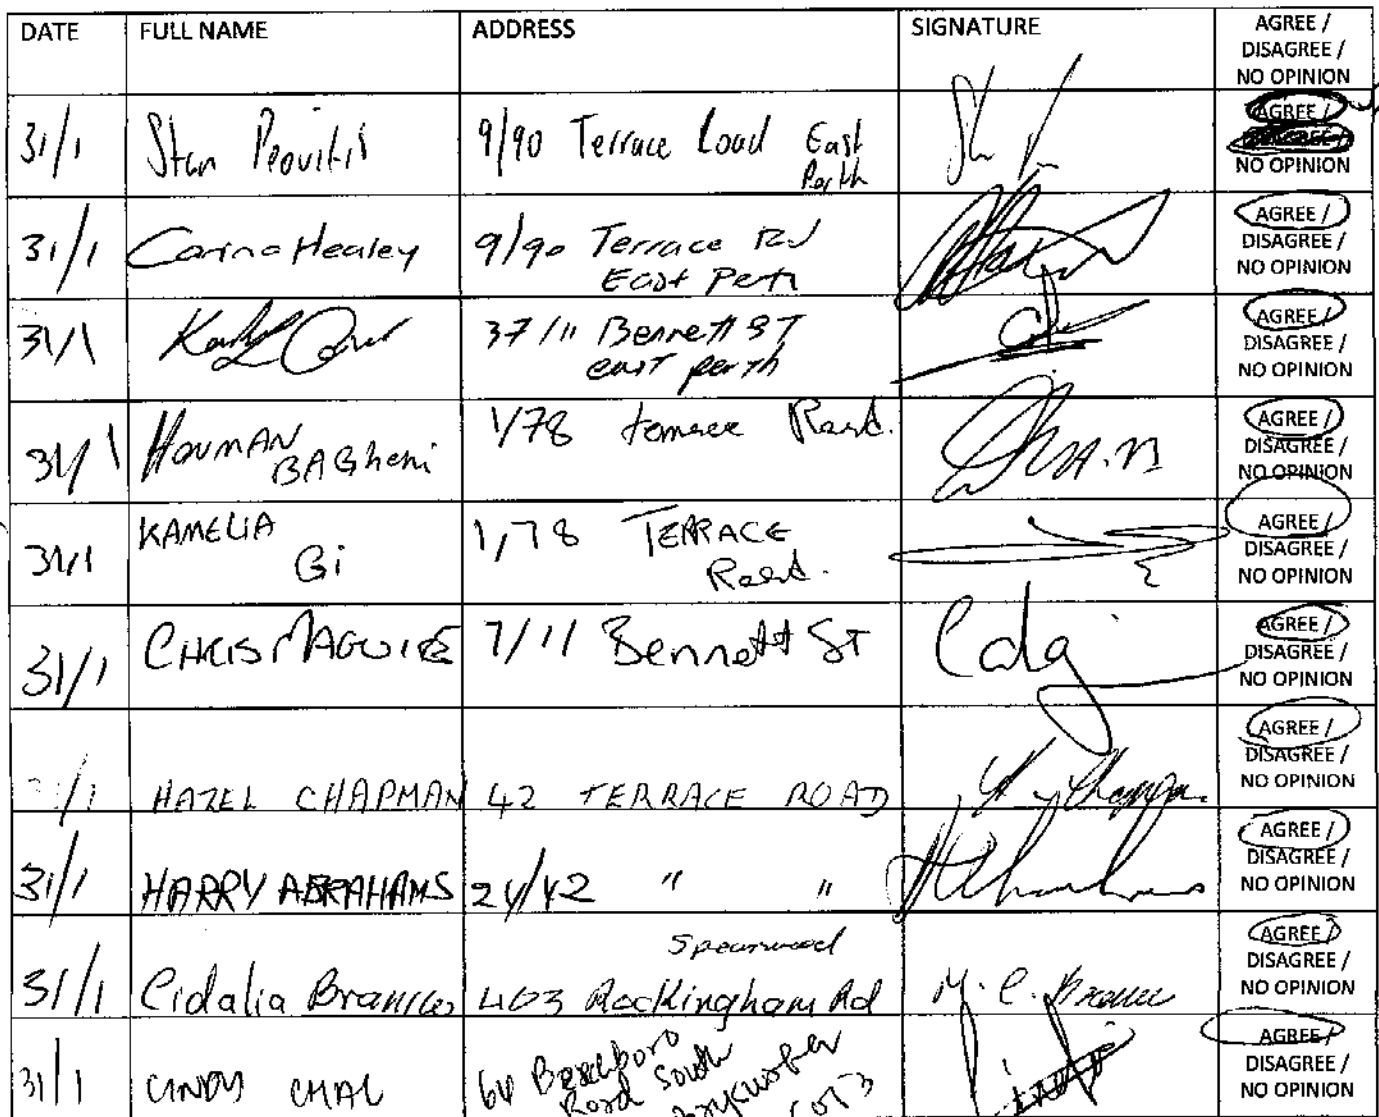 DATE FULL NAME ADDRESS SIGNATURE AGREE /
DISAGREE /
NO OPINION
31/1 Stan 9/90 Terrace Road East
Perth
AGREE /
NO OPINION
31/1 Carina Healey 9/90 Terrace Rd
East Perth
AGREE /
DISAGREE /
NO OPINION
31/1 37/11 Bennett ST
east perth
AGREE /
DISAGREE /
NO OPINION
31/1 HOUMAN
BAGheri
1/78 terrace Road.
AGREE /
DISAGREE /
NO OPINION
31/1 KAMELIA
Gi
1,78 TERRACE
Road.
AGREE /
DISAGREE /
NO OPINION
31/1 CHRIS MAGUIRE 7/11 Bennett ST
AGREE /
DISAGREE /
NO OPINION
31/1 HAZEL CHAPMAN 42 TERRACE ROAD
AGREE /
DISAGREE /
NO OPINION
31/1 HARRY ABRAHAMS 24/42 " "
AGREE /
DISAGREE /
NO OPINION
31/1 Cidalia Spearwood
403 Rockingham Rd
AGREE /
DISAGREE /
NO OPINION
31/1 CINDY 60
Road South
AGREE /
DISAGREE /
NO OPINION